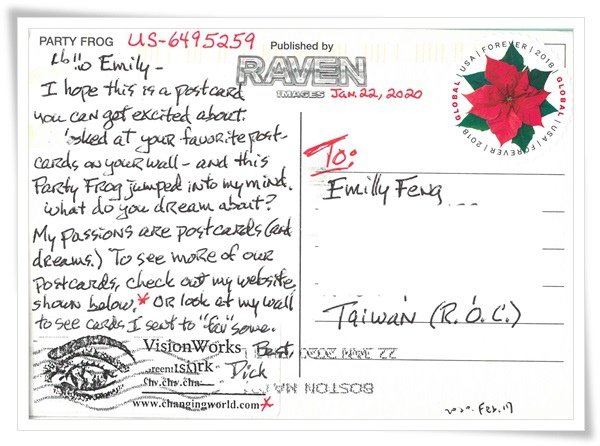 PARTY FROG US-6495259
Published by
RAVEN
IMAGES
Jan. 22, 2020
GLOBAL | USA | FOREVER | 2018
GLOBAL | USA | FOREVER | 2018
Emily -
I hope this is a postcard
you can get excited about.
at your favorite post-
cards on your wall - and this
Party Frog jumped into my mind.
What do you dream about?
My passions are postcards (and
dreams.) To see more of our
postcards, check out my website,
shown below.* OR look at my wall
to see cards I sent to "fav" some.
Best,
Dick
VisionWorks
www.changingworld.com*
To:
Emilly Feng
Taiwan (R.O.C.)
22 JAN 2020
BOSTON MA
2020. Feb. 17